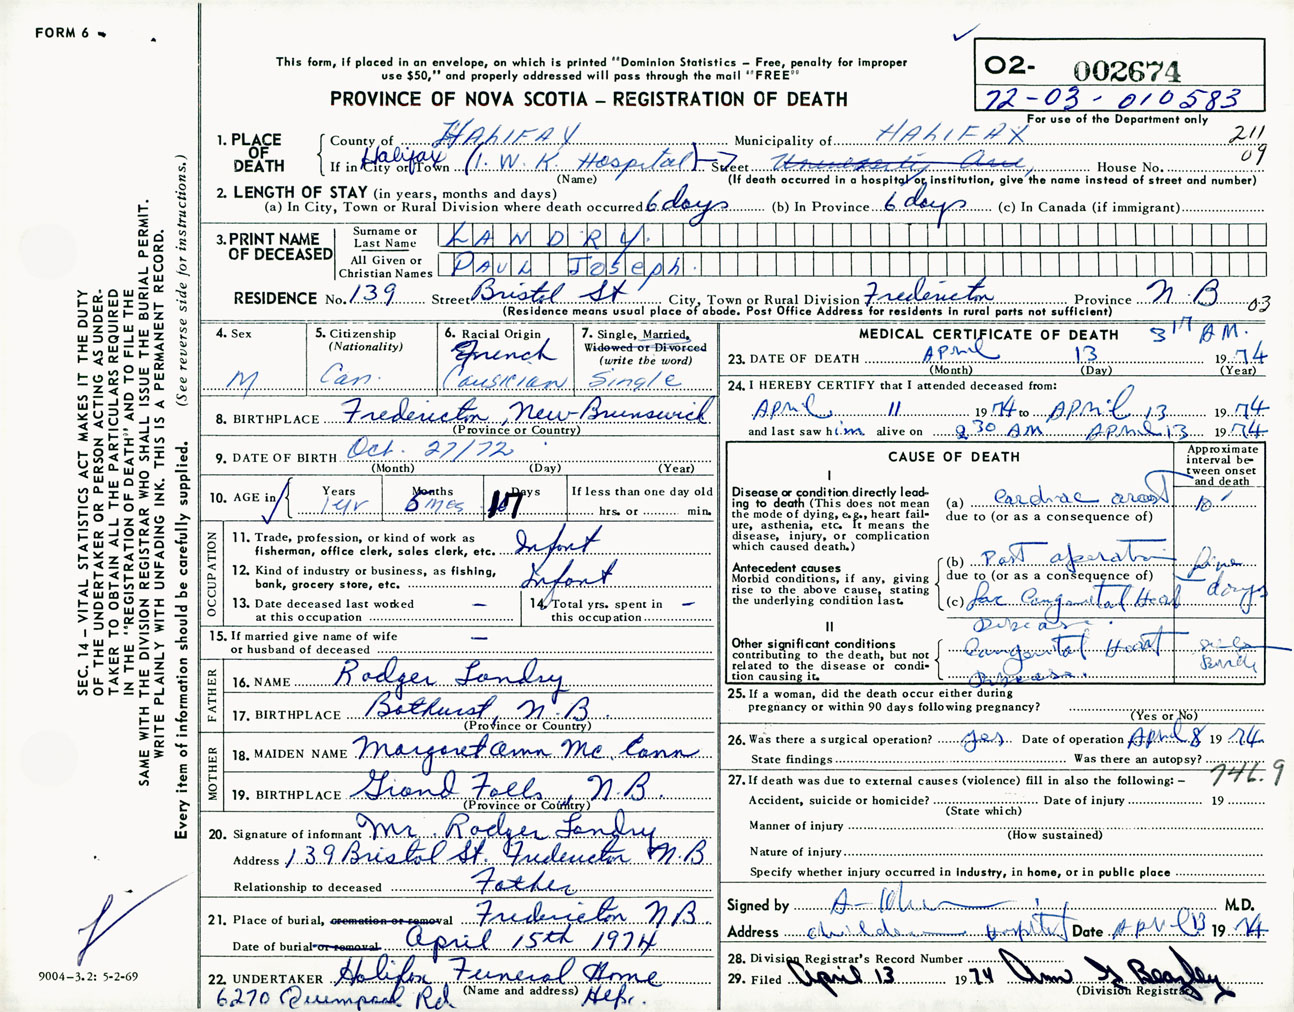 FORM 6
This form, if placed in an envelope, on which is printed "Dominion Statistics – Free, penalty for improper
use $50," and properly addressed will pass through the mail "FREE"
PROVINCE OF NOVA SCOTIA – REGISTRATION OF DEATH
O2- 002674
72-03-010583
For use of the Department only
211
09
1. PLACE OF DEATH
County of HALIFAX Municipality of HALIFAX
If in City or Town Halifax (I. W. K. Hospital) Street University Ave, House No.
(Name) (If death occurred in a hospital or institution, give the name instead of street and number)
2. LENGTH OF STAY (in years, months and days)
(a) In City, Town or Rural Division where death occurred 6 days (b) In Province 6 days (c) In Canada (if immigrant)
3. PRINT NAME OF DECEASED
Surname or Last Name LANDRY.
All Given or Christian Names PAUL Joseph.
RESIDENCE No. 139 Street Bristol St City, Town or Rural Division Fredericton Province N.B 03
(Residence means usual place of abode. Post Office Address for residents in rural parts not sufficient)
4. Sex M
5. Citizenship (Nationality) Can.
6. Racial Origin French
7. Single, Married, Widowed or Divorced (write the word) Single
8. BIRTHPLACE Fredericton, New-Brunswick
(Province or Country)
9. DATE OF BIRTH Oct. 27/72
(Month) (Day) (Year)
10. AGE in Years 1 yr Months 5 mos Days 17 If less than one day old
hrs. or min.
OCCUPATION
11. Trade, profession, or kind of work as
fisherman, office clerk, sales clerk, etc. Infant
12. Kind of industry or business, as fishing,
bank, grocery store, etc. Infant
13. Date deceased last worked at this occupation –
14. Total yrs. spent in this occupation –
15. If married give name of wife
or husband of deceased –
FATHER
16. NAME Rodger Landry
17. BIRTHPLACE Bathurst, N.B.
(Province or Country)
MOTHER
18. MAIDEN NAME Margaret Ann Mc Cann
19. BIRTHPLACE Grand Falls, N.B.
(Province or Country)
20. Signature of informant Mr. Rodger Landry
Address 139 Bristol St. Fredericton N.B
Relationship to deceased Father
21. Place of burial, cremation or removal Fredericton N.B.
Date of burial or removal April 15th 1974
22. UNDERTAKER Halifax Funeral Home
(Name and address)
6270 Rd Hfx.
MEDICAL CERTIFICATE OF DEATH 3 17 AM.
23. DATE OF DEATH April 13 1974
(Month) (Day) (Year)
24. I HEREBY CERTIFY that I attended deceased from:
April 11 1974 to April 13 1974
and last saw him alive on 30 AM April 13 1974
CAUSE OF DEATH
Approximate interval between onset and death
I
Disease or condition directly leading to death (This does not mean the mode of dying, e.g., heart failure, asthenia, etc. It means the disease, injury, or complication which caused death.)
(a) Cardiac arrest 10'
due to (or as a consequence of)
Antecedent causes
Morbid conditions, if any, giving rise to the above cause, stating the underlying condition last.
(b) Post operation Five days
due to (or as a consequence of)
(c) for Congenital Heart Disease.
II
Other significant conditions
contributing to the death, but not related to the disease or condition causing it.
Congenital Heart Disease.
25. If a woman, did the death occur either during
pregnancy or within 90 days following pregnancy?
(Yes or No)
26. Was there a surgical operation? yes Date of operation April 8 1974
State findings Was there an autopsy?
746.9
27. If death was due to external causes (violence) fill in also the following: –
Accident, suicide or homicide? Date of injury 19
(State which)
Manner of injury
(How sustained)
Nature of injury
Specify whether injury occurred in industry, in home, or in public place
Signed by M.D.
Address Children Hospital Date April 13 1974
28. Division Registrar's Record Number
29. Filed April 13 1974 Ann G Beazley
(Division Registrar)
SEC. 14 – VITAL STATISTICS ACT MAKES IT THE DUTY
OF THE UNDERTAKER OR PERSON ACTING AS UNDER-
TAKER TO OBTAIN ALL THE PARTICULARS REQUIRED
IN THE "REGISTRATION OF DEATH" AND TO FILE THE
SAME WITH THE DIVISION REGISTRAR WHO SHALL ISSUE THE BURIAL PERMIT.
WRITE PLAINLY WITH UNFADING INK. THIS IS A PERMANENT RECORD.
Every item of information should be carefully supplied. (See reverse side for instructions.)
9004-3.2: 5-2-69